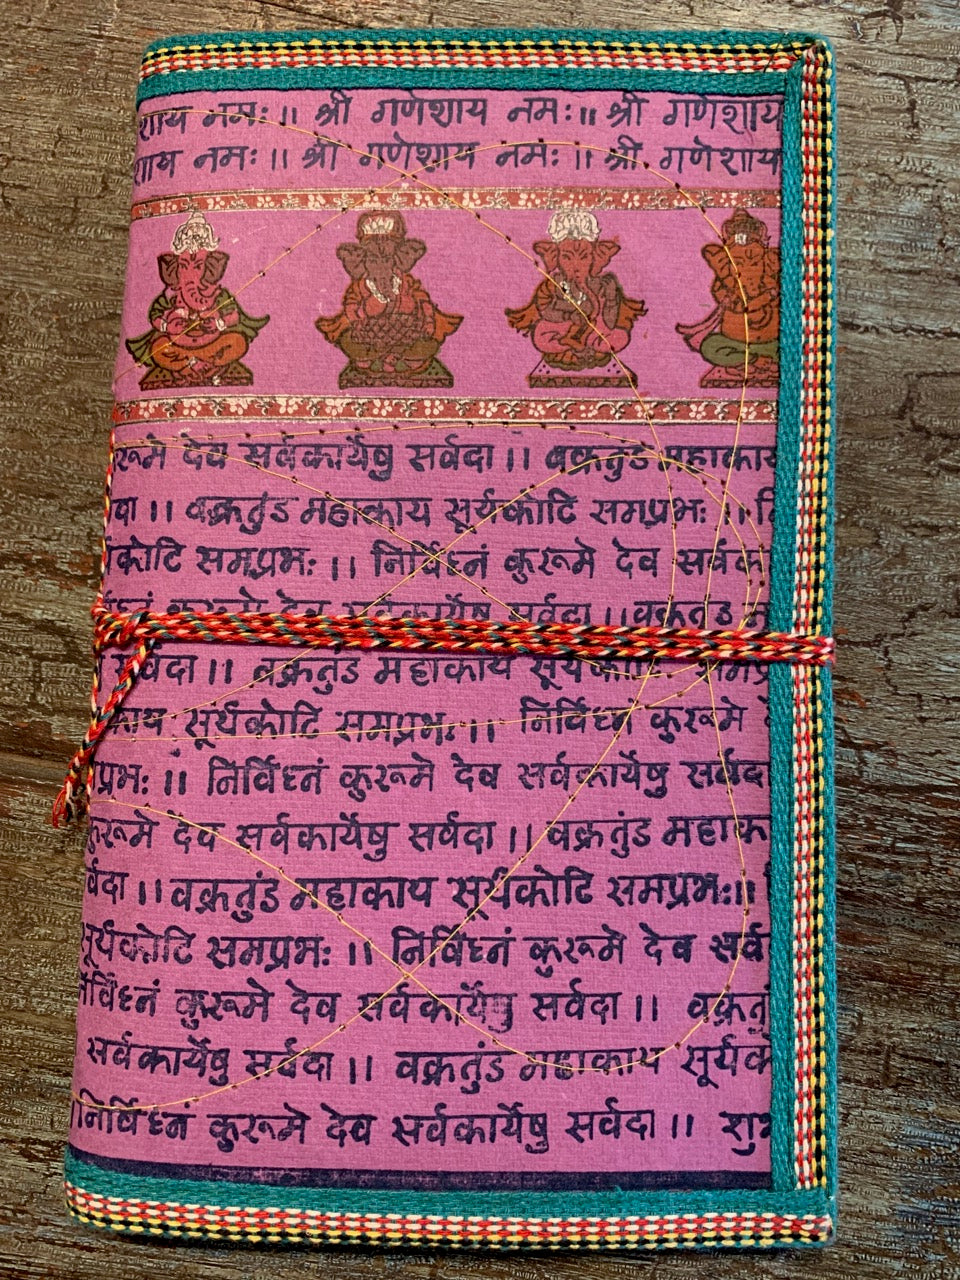 शाय नमः ॥ श्री गणेशाय नमः ॥ श्री गणेशाय
शाय नमः ॥ श्री गणेशाय नमः ॥ श्री गणेशाय
कुरूमे देव सर्वकार्येषु सर्वदा ॥ वक्रतुंड महाकाय
दा ॥ वक्रतुंड महाकाय सूर्यकोटि समप्रभः ॥ नि
सूर्यकोटि समप्रभः ॥ निर्विघ्नं कुरूमे देव सर्वका
विघ्नं कुरूमे देव सर्वकार्येषु सर्वदा ॥ वक्रतुंड म
सर्वदा ॥ वक्रतुंड महाकाय सूर्यकोटि समप्र
काय सूर्यकोटि समप्रभः ॥ निर्विघ्नं कुरूमे दे
प्रभः ॥ निर्विघ्नं कुरूमे देव सर्वकार्येषु सर्वदा
कुरूमे देव सर्वकार्येषु सर्वदा ॥ वक्रतुंड महाका
र्वदा ॥ वक्रतुंड महाकाय सूर्यकोटि समप्रभः ॥ नि
सूर्यकोटि समप्रभः ॥ निर्विघ्नं कुरूमे देव सर्व
निर्विघ्नं कुरूमे देव सर्वकार्येषु सर्वदा ॥ वक्रतुं
सर्वकार्येषु सर्वदा ॥ वक्रतुंड महाकाय सूर्यक
निर्विघ्नं कुरूमे देव सर्वकार्येषु सर्वदा ॥ शुभ